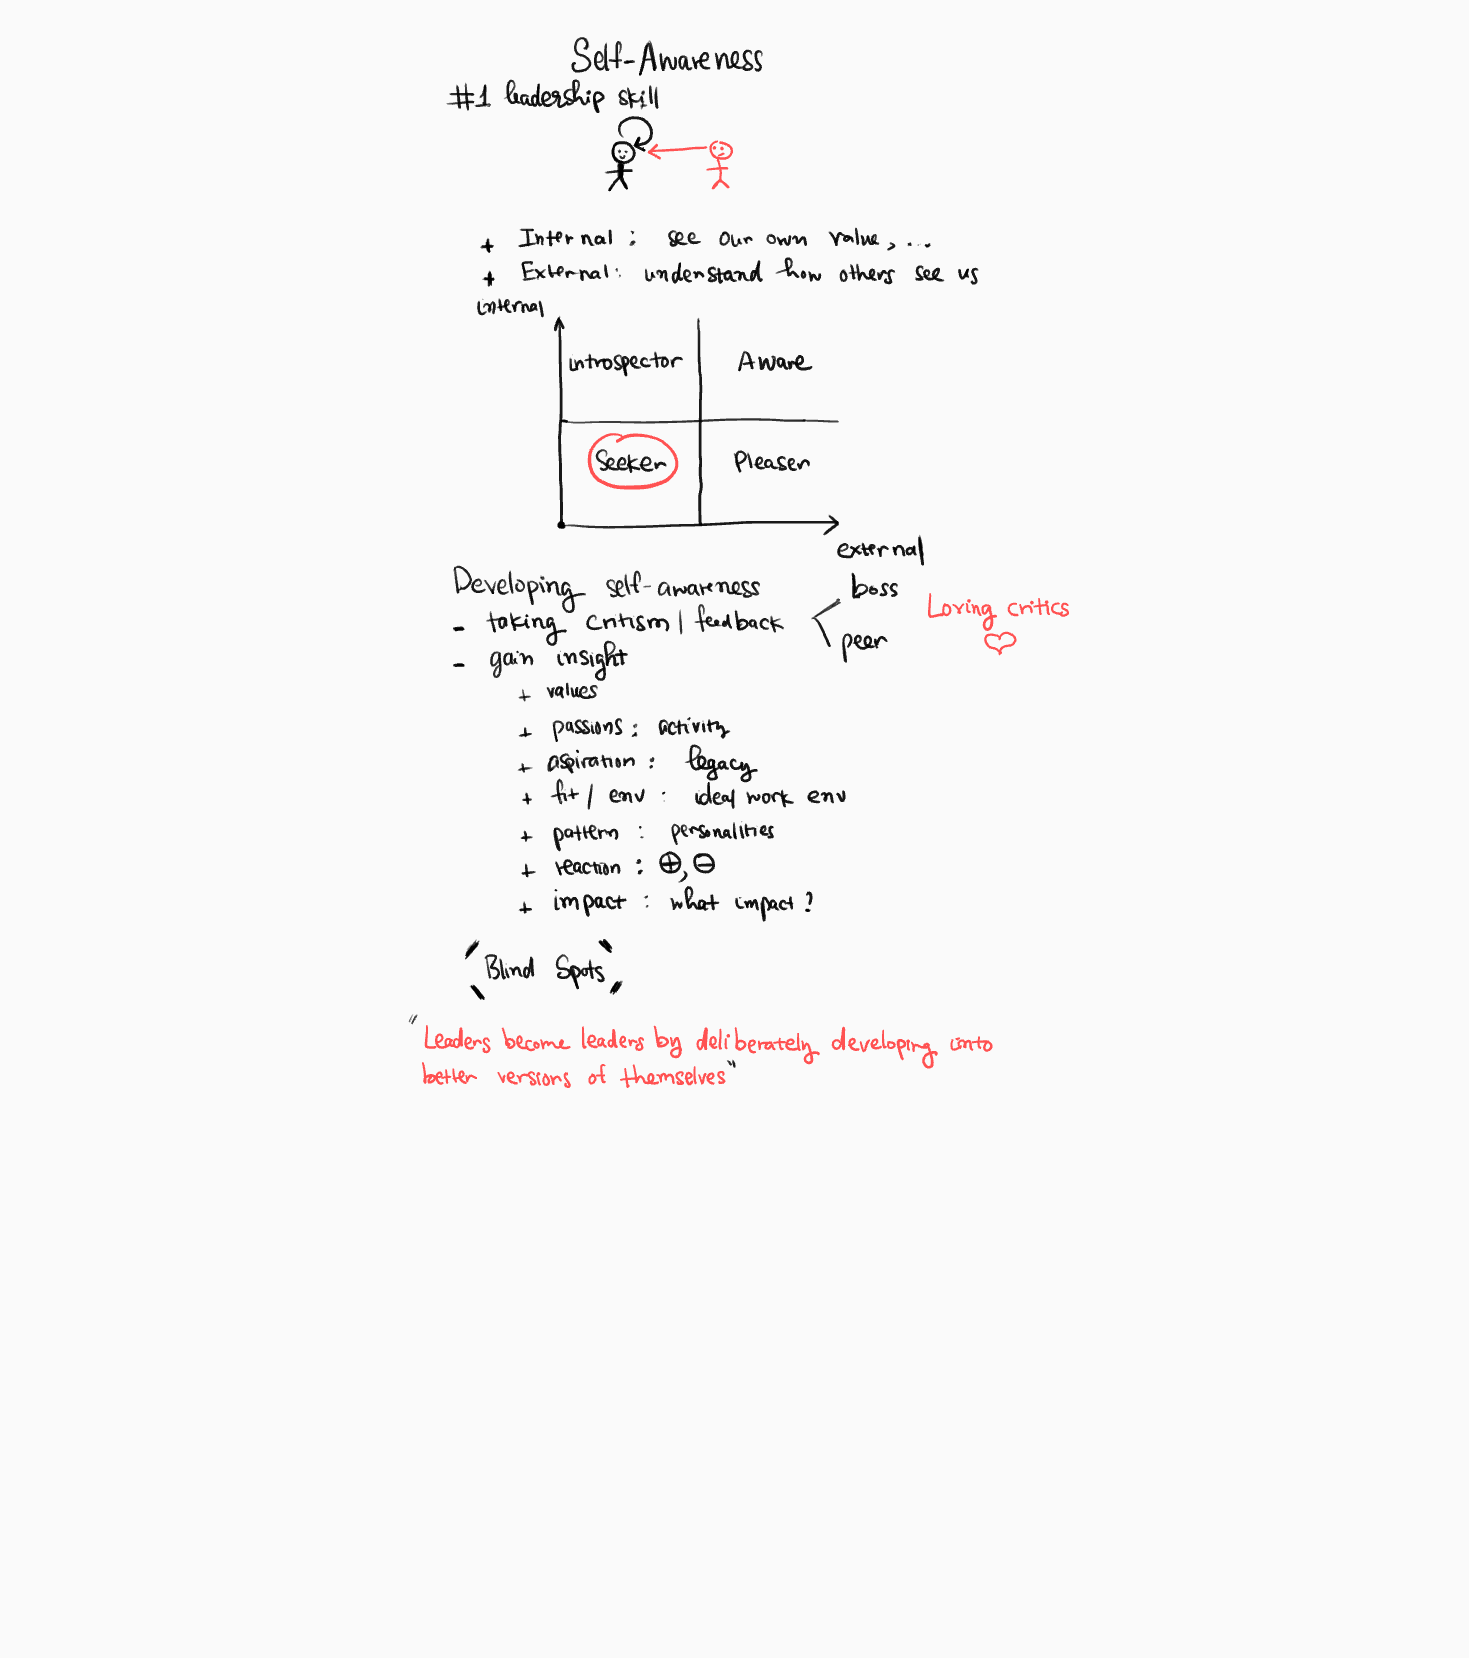 Self-Awareness
#1 leadership skill
+ Internal : see our own value, ...
+ External : understand how others see us
internal
introspector Aware
Seeker Pleaser
external
Developing self-awareness
boss
- taking critism / feedback
Loving critics
peer
- gain insight
+ values
+ passions : activity
+ aspiration : legacy
+ fit / env : ideal work env
+ pattern : personalities
+ reaction : ⊕, ⊖
+ impact : what impact ?
Blind Spots
"Leaders become leaders by deliberately developing into
better versions of themselves"